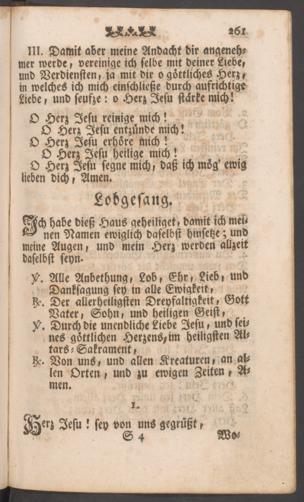 261
III. Damit aber meine Andacht dir angeneh-
mer werde, vereinige ich selbe mit deiner Liebe,
und Verdiensten, ja mit dir o göttliches Herz,
in welches ich mich einschließe durch aufrichtige
Liebe, und seufze: o Herz Jesu stärke mich!
O Herz Jesu reinige mich!
O Herz Jesu entzünde mich!
O Herz Jesu erhöre mich!
O Herz Jesu heilige mich!
O Herz Jesu segne mich, daß ich mög' ewig
lieben dich, Amen.
Lobgesang.
Ich habe dieß Haus geheiliget, damit ich mei-
nen Namen ewiglich daselbst hinsetze; und
meine Augen, und mein Herz werden allzeit
daselbst seyn.
℣. Alle Anbethung, Lob, Ehr, Lieb, und
Danksagung sey in alle Ewigkeit,
℟. Der allerheiligsten Dreyfaltigkeit, Gott
Vater, Sohn, und heiligen Geist,
℣. Durch die unendliche Liebe Jesu, und sei-
nes göttlichen Herzens, im heiligsten Al-
tars-Sakrament,
℟. Von uns, und allen Kreaturen, an al-
len Orten, und zu ewigen Zeiten, A-
men.
1.
Herz Jesu! sey von uns gegrüßt,
S 4 Wo-